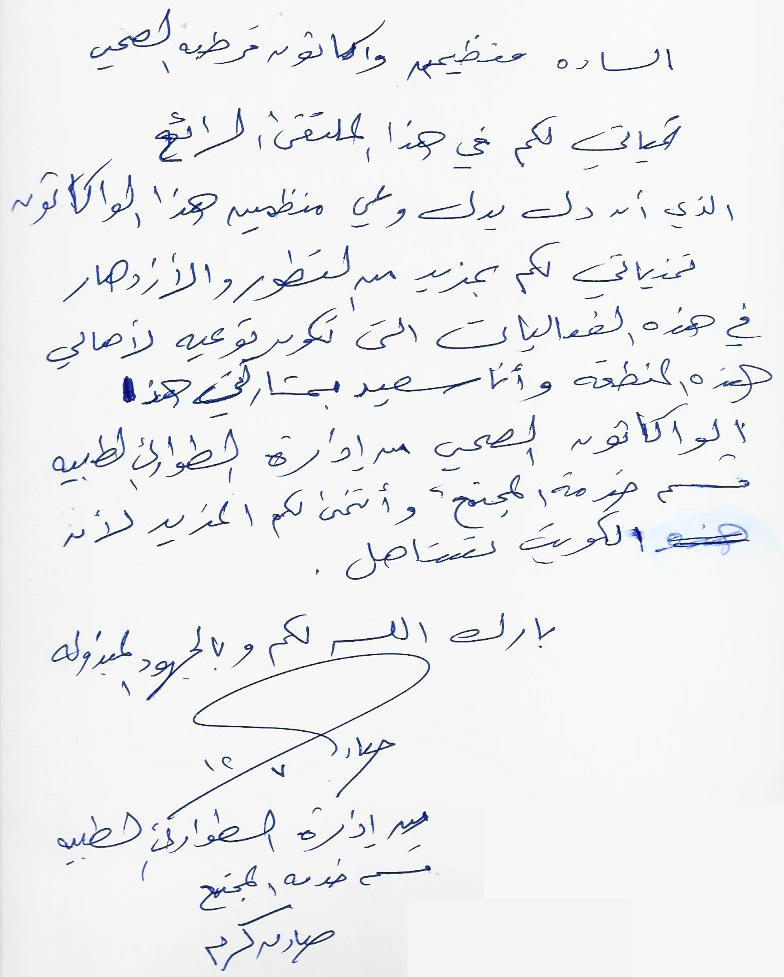 الساده منظمين واكاثون قرطبه الصحي
تحياتي لكم في هذا الملتقى الرائع
الذي أن دل يدل وعلي منظمين هذا الواكاثون
تمنياتي لكم بمزيد من التطور والأزدهار
في هذه الفعاليات التى تكون توعيه لأهالي
هذه المنطقه وأنا سعيد بمشاركتي هذا
الواكاثون الصحي من إدارة الطوارئ الطبيه
قسم خدمة المجتمع وأتمنى لكم المزيد لأن
الكويت تستاهل .
بارك الله لكم وبالجهود المبذوله
١٢ ٧
من إدارة الطوارئ الطبيه
قسم خدمه المجتمع
كرم